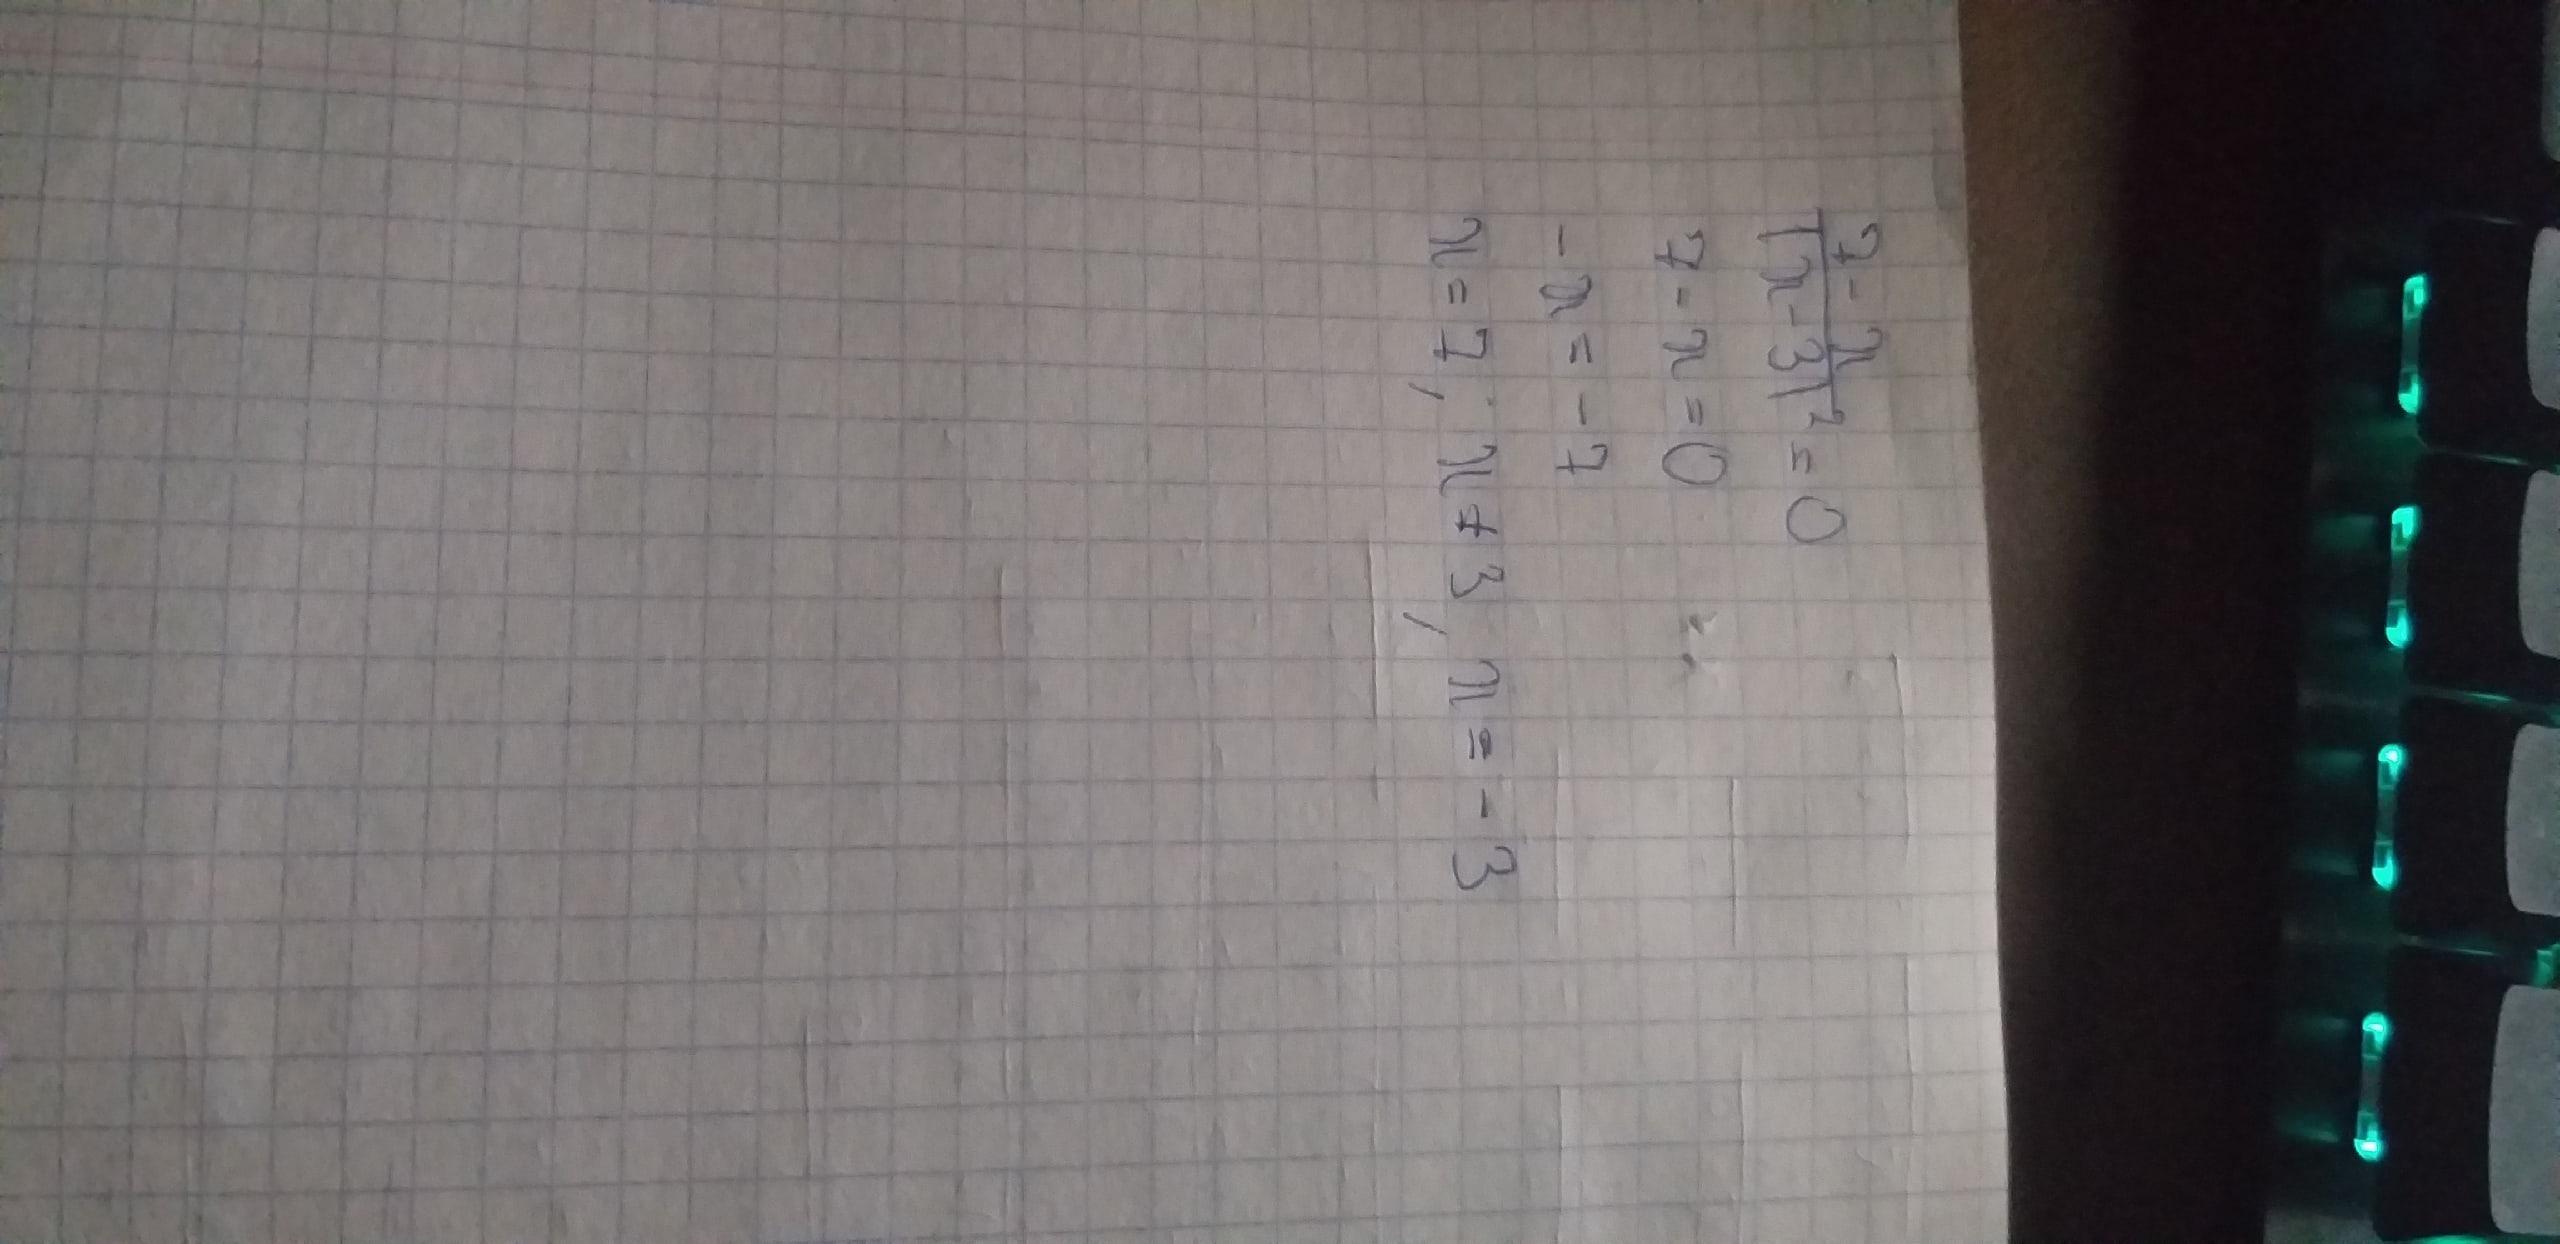 7 - x / |x - 3|² = 0
7 - x = 0
- x = - 7
x = 7, x ≠ 3, x = - 3